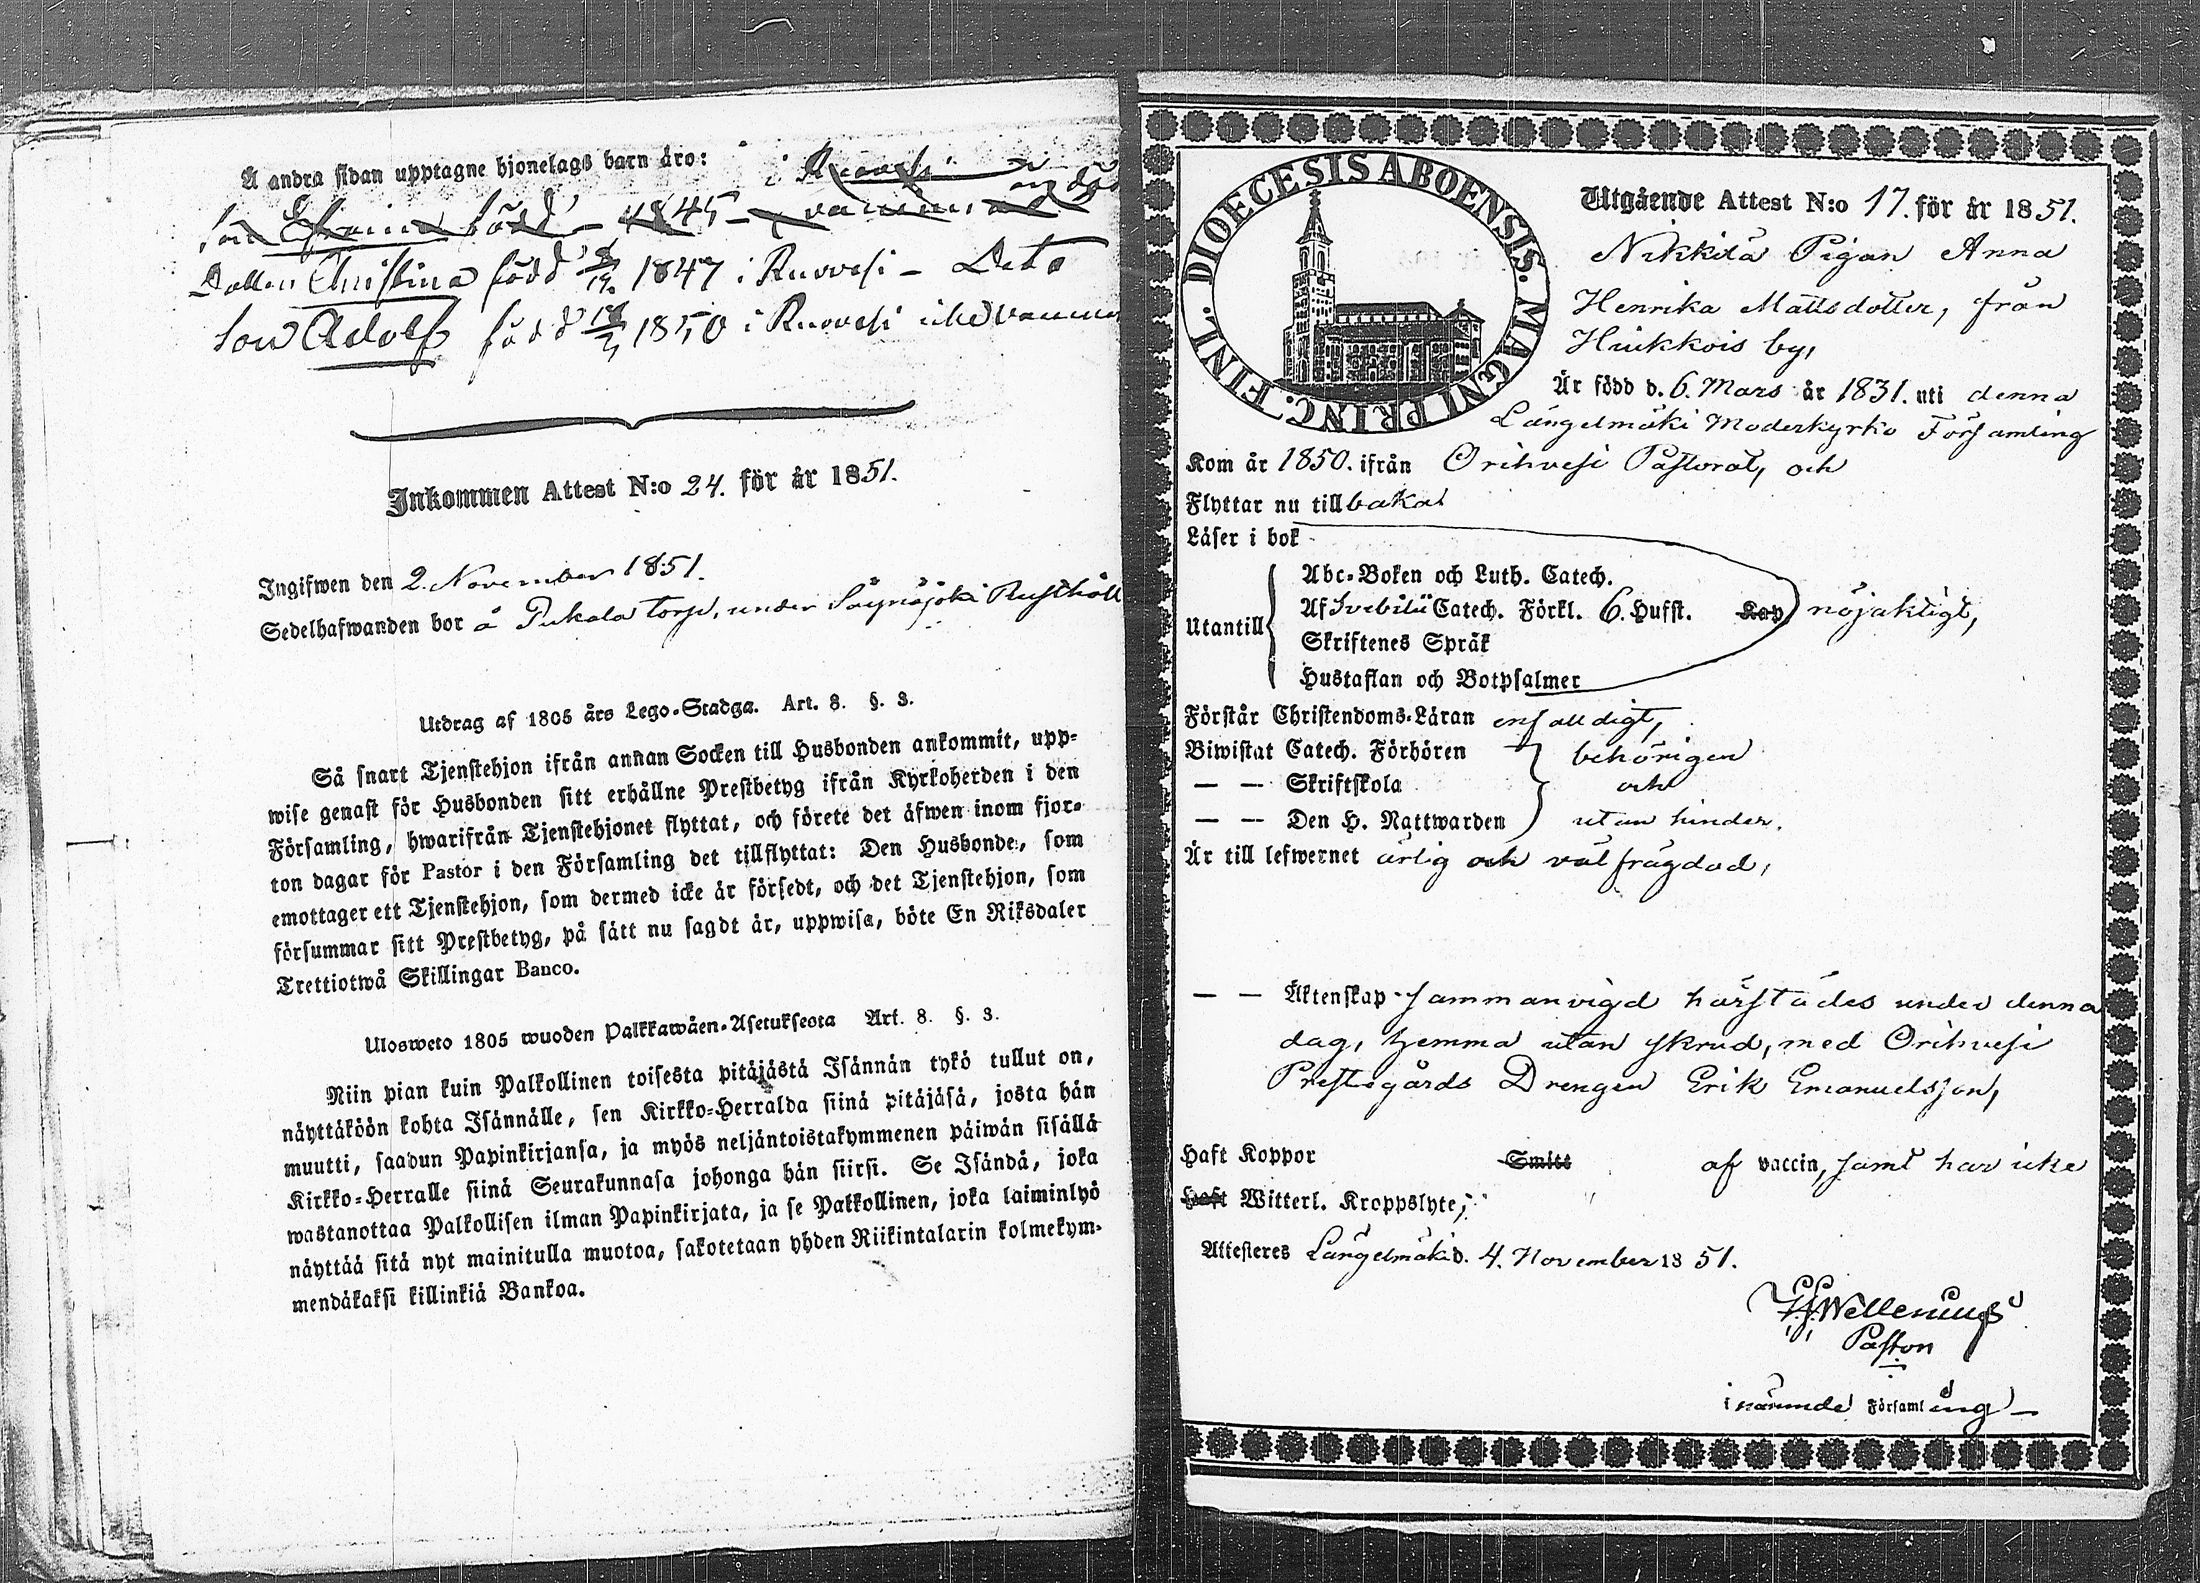 Å andra sidan upptagne hjonelags barn äro:
i Ruovesi
son Efraim född 1845
Dottren Christina född 1847 i Ruovesi – Deto
son Adolf född 1850 i Ruovesi icke
Inkommen Attest N:o 24. för år 1851.
Ingifwen den 2. November 1851.
Sedelhafwanden bor å Pukala torp, under Rusthåll
Utdrag af 1805 års Lego-Stadga. Art. 8. §. 3.
Så snart Tjenstehjon ifrån annan Socken till Husbonden ankommit, upp-
wise genast för Husbonden sitt erhållne Prestbetyg ifrån Kyrkoherden i den
Församling, hwarifrån Tjenstehjonet flyttat, och förete det äfwen inom fjor-
ton dagar för Pastor i den Församling det tillflyttat: Den Husbonde, som
emottager ett Tjenstehjon, som dermed icke är försedt, och det Tjenstehjon, som
försummar sitt Prestbetyg, på sätt nu sagdt är, uppwisa, böte En Riksdaler
Trettiotwå Skillingar Banco.
Ulosweto 1805 wuoden Palkkawäen-Asetuksesta Art. 8. §. 3.
Niin pian kuin Palkollinen toisesta pitäjästä Isännän tykö tullut on,
näyttäköön kohta Isännälle, sen Kirkko-Herralda siinä pitäjäsä, josta hän
muutti, saadun Papinkirjansa, ja myös neljäntoistakymmenen päiwän sisällä
Kirkko-Herralle siinä Seurakunnasa johonga hän siirsi. Se Isändä, joka
wastanottaa Palkollisen ilman Papinkirjata, ja se Palkollinen, joka laiminlyö
näyttää sitä nyt mainitulla muotoa, sakotetaan yhden Riikintalarin kolmekym-
mendäkaksi killinkiä Bankoa.
DIOECESIS ABOENSIS. MAGNI PRINC. FINL.
Utgående Attest N:o 17. för år 1851.
Nikkilä Pigan Anna
Henrika Mattsdotter, från
Hiukkois by,
Är född d. 6. Mars år 1831. uti denna
Längelmäki Moderkyrko Församling
Kom år 1850. ifrån Orihvesi Pastorat, och
Flyttar nu tillbaka
Läser i bok
Abc-Boken och Luth. Catech.
Utantill Af Svebilii Catech. Förkl. 6. Hufst. Kap nöjaktigt,
Skriftenes Språk
Hustaflan och Botpsalmer
Förstår Christendoms-Läran enfaldigt,
Biwistat Catech. Förhören behörigen
— — Skriftskola och
— — Den H. Nattwarden utan hinder.
Är till lefwernet ärlig och välfrägdad,
— — Äktenskap sammanvigd härstädes under denna
dag, hemma utan skrud, med Orihvesi
Prestegårds Drengen Erik Emanuelsson,
Haft Koppor Smitt af vaccin, samt har icke
Haft Witterl. Kroppslyte,
Attesteres Längelmäki d. 4. November 1851.
Wellenius
Pastor
i närunde Församling –